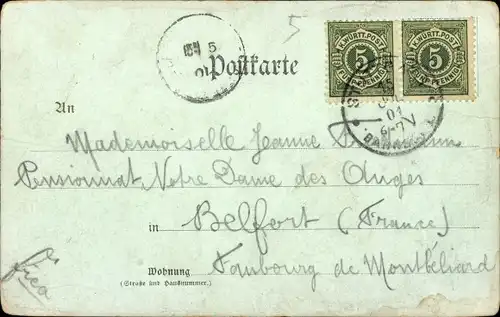 5
K. WÜRTT. POST
5
FÜNF PFENNIG
K. WÜRTT. POST
5
FÜNF PFENNIG
Postkarte
An
Mademoiselle Jeanne
Pensionnat Notre Dame des Anges
in Belfort (France)
Faubourg de Montbéliard
Wohnung
(Straße und Hausnummer.)